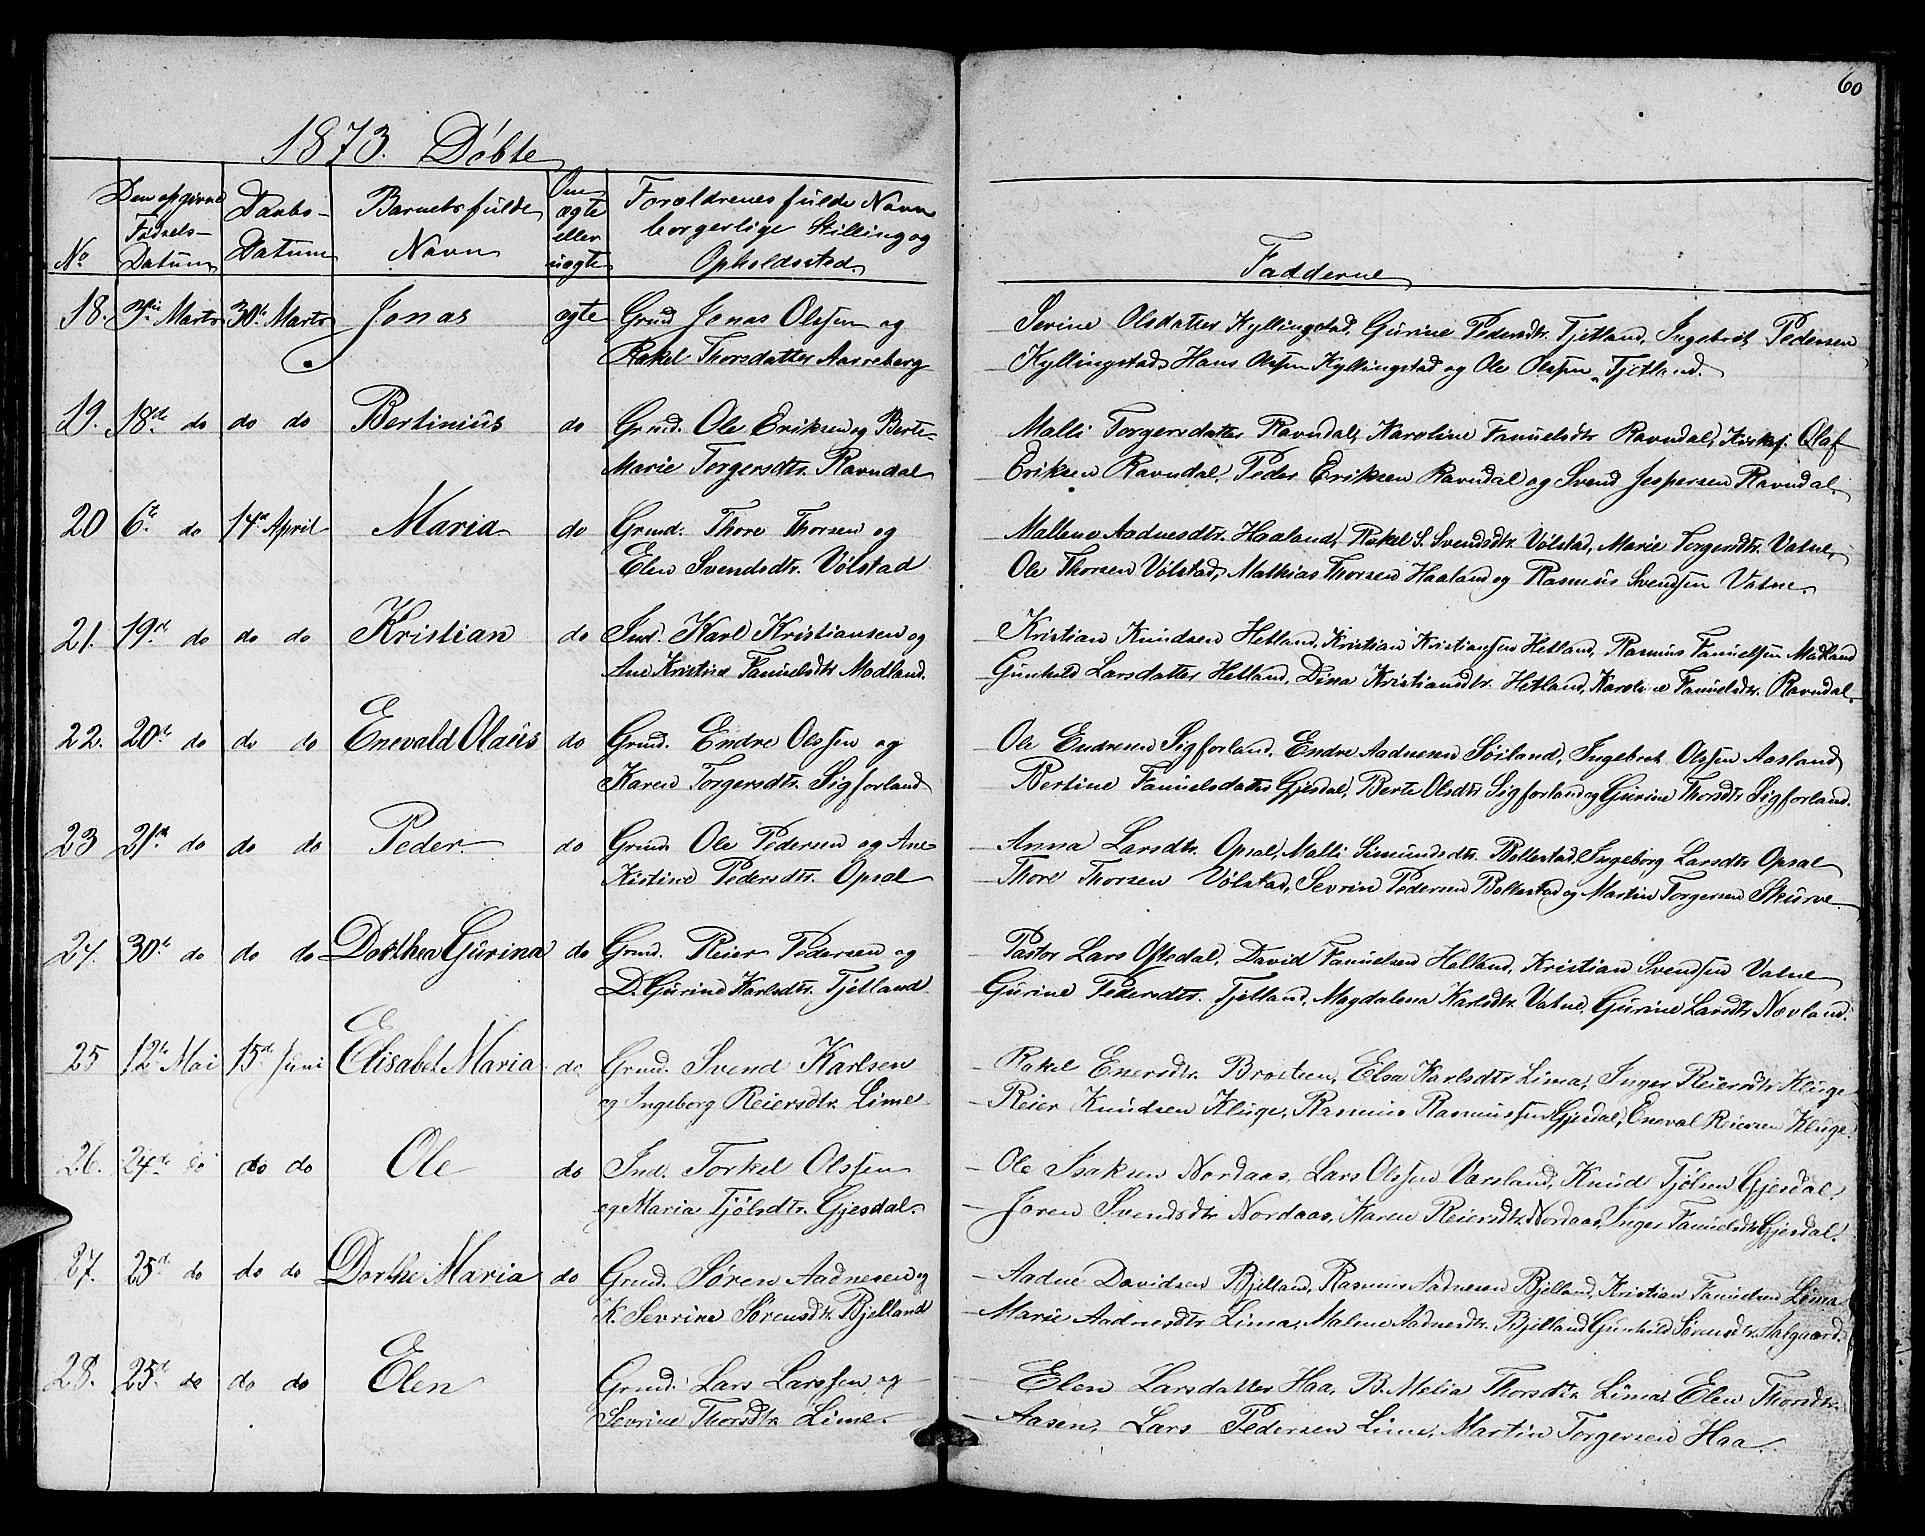 60
1873. Døbte
No
Den opgivne Fødsels-Datum
Daabs-Datum
Barnets fulde Navn
Om ægte eller uægte
Forældrenes fulde Navn borgerlige Stilling og Opholdssted
Fadderne
18. 3die Marts 30te Marts Jonas ægte Grmd Jonas Olssen og
Rakel Thorsdatter Aarreberg
Serine Olsdatter Kyllingstad, Gurine Pedersdtr. Tjetland, Ingebrit Pedersen
Kyllingstad, Hans Olssen Kyllingstad og Ole Olssen Tjetland.
19. 18de do do do Bertinius do Grmd. Ole Eriksen og Berte
Marie Torgersdtr. Ravndal
Malli Torgersdatter Ravndal, Karoline Tanielsdtr Ravndal, Olaf
Eriksen Ravndal, Peder Eriksen Ravndal og Svend Jespersen Ravndal.
20 6te do 14de April Maria do Grmd. Thore Thorsen og
Elen Svendsdtr. Vølstad
Mallene Aadnesdtr. Haaland, Rakel S. Svendsdtr. Vølstad, Marie Torgersdtr. Vatne,
Ole Thorsen Vølstad, Mathias Thorsen Haaland og Rasmus Svendsen Vatne.
21. 19de do do do Kristian do Ind. Karl Kristiansen og
Ane Kristine Tanielsdtr Modland.
Kristian Knudsen Hetland, Kristian Kristiansen Hetland, Rasmus Tanielsen Madland
Gunhild Larsdatter Hetland, Dina Kristiansdtr. Hetland, Karoline Tanielsdtr. Ravndal.
22. 20de do do do Enevald Olaüs do Grmd. Endre Olssen og
Karen Torgersdtr. Sigforland
Ole Endresen Sigforland, Endre Aadnesen Søiland, Ingebret Olssen Aasland
Bertine Tanielsdatter Gjesdal, Berte Olsdtr Sigforland og Gurine Thorsdtr Sigforland.
23 21de do do do Peder do Grmd. Ole Pedersen og Ane
Kistine Pedersdtr. Opsal
Anna Larsdtr. Opsal, Malli Simundsdtr. Bollestad, Ingeborg Larsdtr Opsal
Thore Thorsen Vølstad, Sevrin Pedersen Bollestad og Martin Torgersen Skurve.
24. 30te do do do Dorthea Gurina do Grmd. Reier Pedersen og
D. Gurine Karlsdtr. Tjetland
Pastor Lars Oftedal, David Tanielsen Helland, Kristian Svendsen Vatne
Gurine Pedersdtr. Tjetland, Magdalena Karlsdtr. Vatne, Gurine Larsdtr Nævland.
25 12te Mai 15de Juni Elisabet Maria do Grmd. Svend Karlsen
og Ingeborg Reiersdtr. Lime
Rakel Enersdtr. Brosteen, Elsa Karlsdtr Lima, Inger Reiersdtr Kluge
Reier Knudsen Kluge, Rasmus Rasmussen Gjesdal, Eneval Reiersen Kluge.
26. 24de do do do Ole do Ind. Torkel Olssen
og Maria Tjølsdtr. Gjesdal.
Ole Isaksen Nordaas, Lars Olssen Varsland, Knud Tjølsen Gjesdal,
Joren Svendsdtr Nordaas, Karen Reiersdtr. Nordaas, Inger Tanielsdtr Gjesdal.
27. 25de do do do Dorthe Maria do Grmd. Søren Aadnesen og
K. Sevrine Sørensdtr. Bjelland
Aadne Davidsen Bjelland, Rasmus Aadnesen Bjelland, Kristian Tanielsen Lima
Marie Aadnesdtr Lima, Malene Aadnesdtr. Bjelland, Gunhild Sørensdtr. Aalgaard.
28. 25de do do do Elen Grmd. Lars Larssen og
Sevrine Thorsdtr Lime.
Elen Larsdatter Haa, B. Melia Thorsdtr. Lima, Elen Thorsdtr.
Aasen, Lars Pedersen Lime, Martin Torgersen Haa.